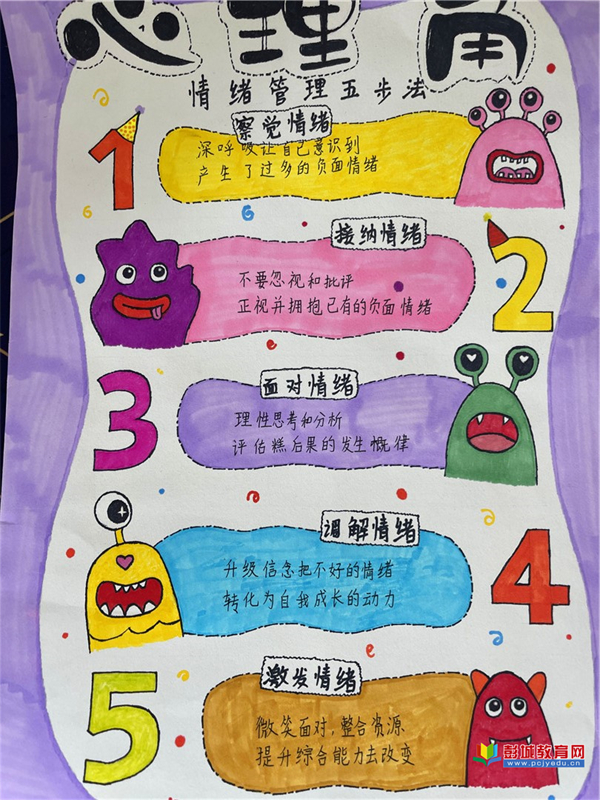 心理角
情绪管理五步法
1
察觉情绪
深呼吸让自己意识到
产生了过多的负面情绪
2
接纳情绪
不要忽视和批评
正视并拥抱已有的负面情绪
3
面对情绪
理性思考和分析
评估糕后果的发生慨律
4
调解情绪
升级信念把不好的情绪
转化为自我成长的动力
5
激发情绪
微笑面对，整合资源
提升综合能力去改变
彭城教育网
www.pcjyedu.cn